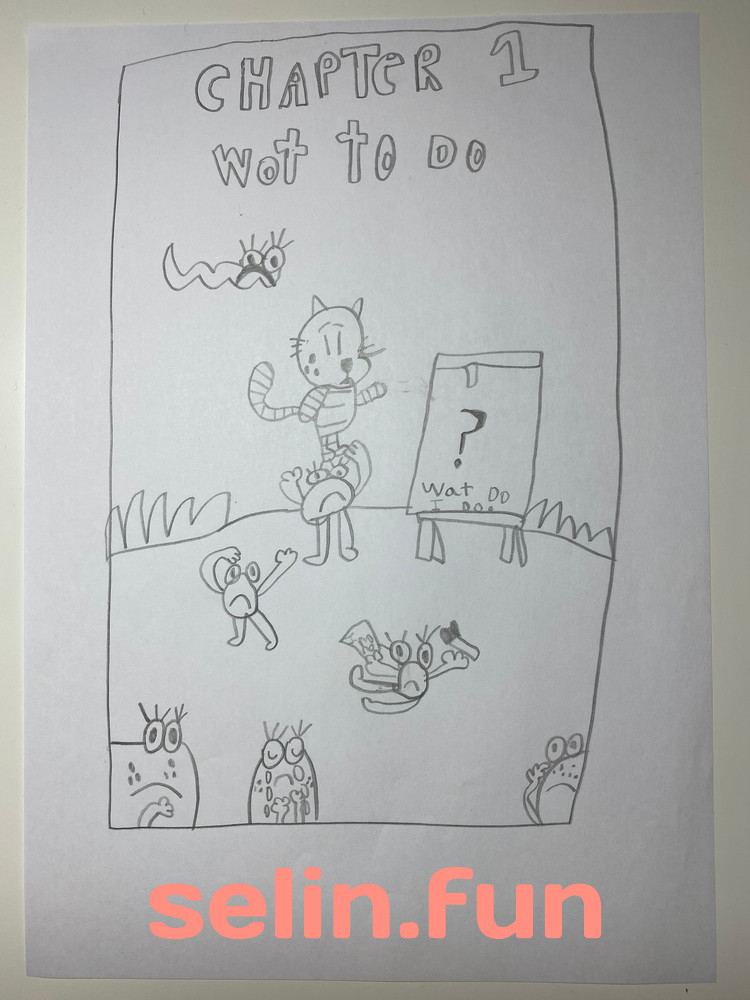 CHAPTER 1
WOT TO DO
?
Wat DO
I DO.
selin.fun